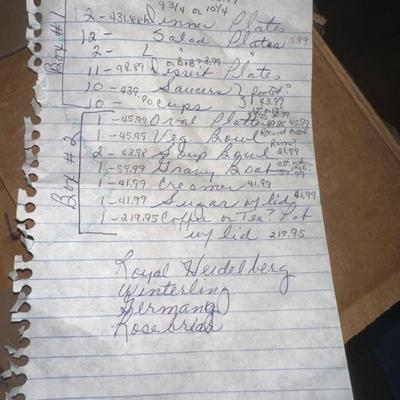 9 3/4 or 10 1/4
12 - 431.88 Dinner Plates
12 - Salad Plates 4.99
2 - L " "
or B+B? 8.99
11 - 98.89 Dessert Plates
10 - 439. Saucers? Footed?
10 - .90 Cups } 43.99
Box #1
1 - 45.99 Oval Platter 45.99
1 - 45.99 Veg. Bowl Round
2 - 43.98 Soup Bowl Rim? 21.99
1 - 59.99 Gravy Boat 59.99
1 - 41.99 Creamer 41.99
1 - 41.99 Sugar w/lid 41.99
1 - 219.95 Coffee or Tea? Pot
w/ lid 219.95
Box #2
Royal Heidelberg
Winterling
Germany
Rose briar